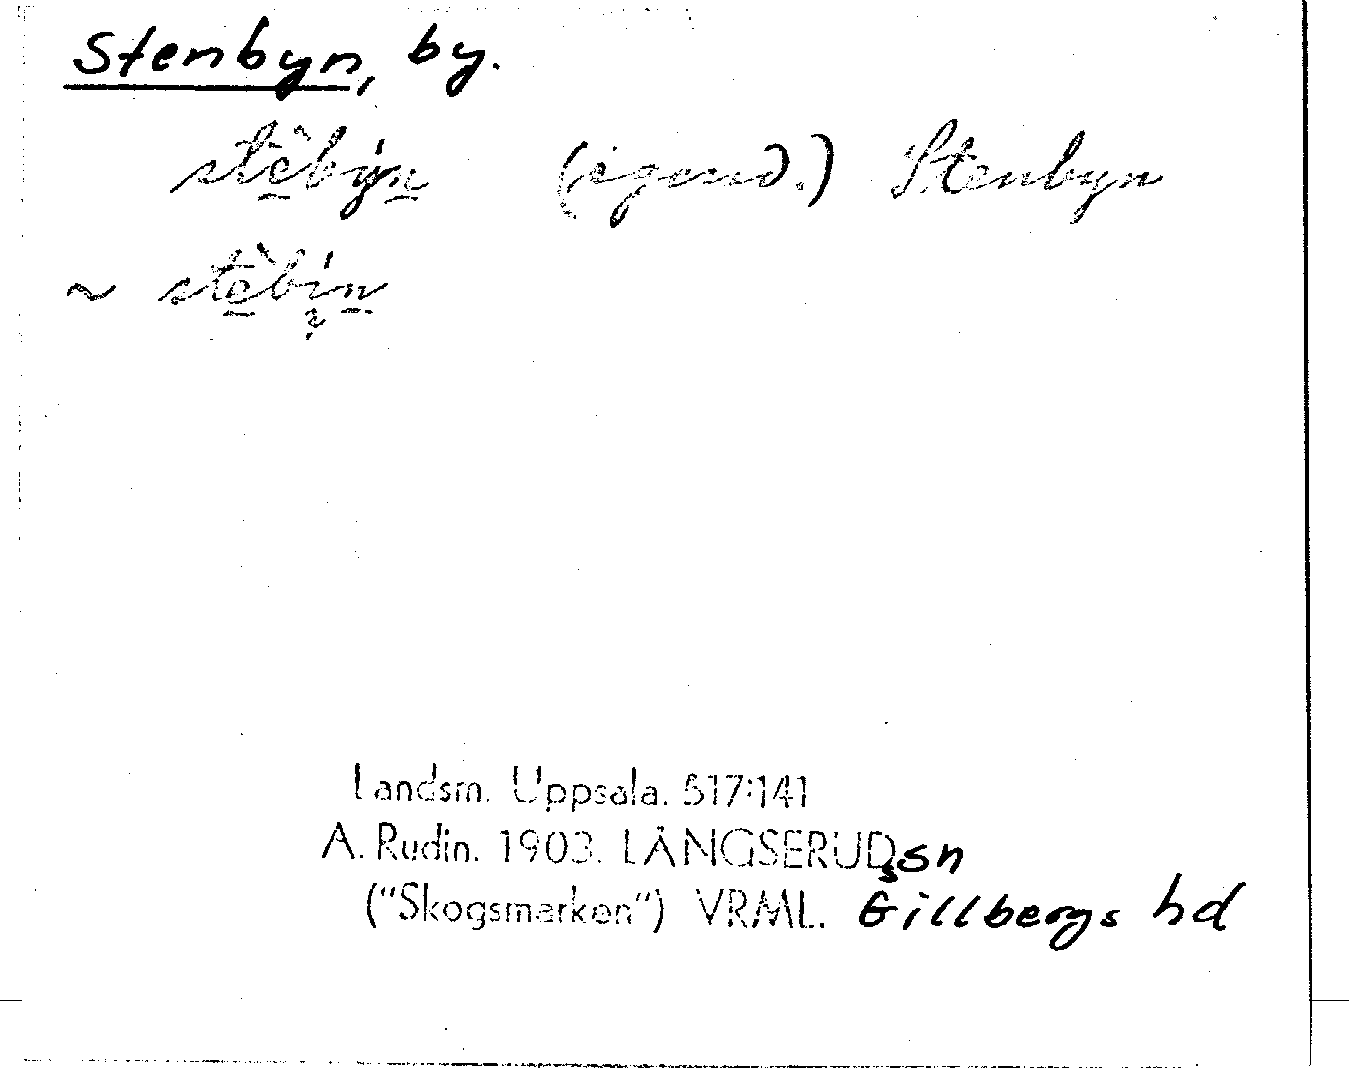 Stenbyn, by.
stèbýn (egend.) Stenbyn
~ stèbín
Landsm. Uppsala. 517:141
A. Rudin. 1903. LÅNGSERUDs sn
("Skogsmarken") VRML. Gillbergs hd